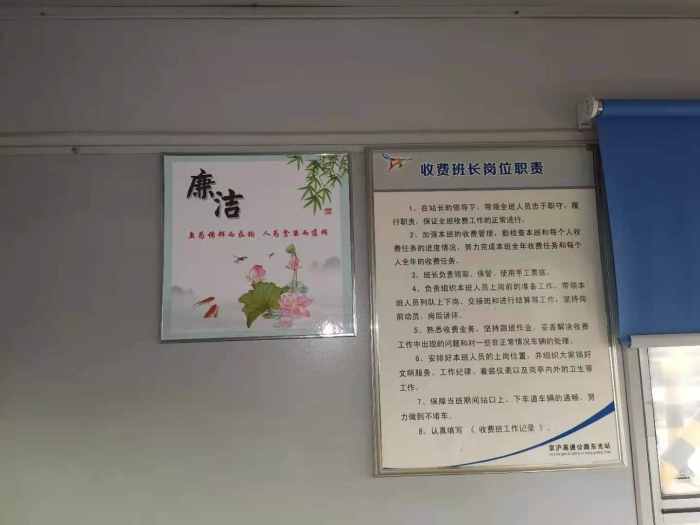 廉洁
鱼为诱饵而吞钩 人为贪婪而落网
收费班长岗位职责
1、在站长的领导下，带领全班人员忠于职守，履
行职责，保证全班收费工作的正常进行。
2、加强本班的收费管理，勤检查本班和每个人收
费任务的进度情况，努力完成本班全年收费任务和每个
人全年的收费任务。
3、班长负责领取、保管、使用手工票据。
4、负责组织本班人员上岗前的准备工作，带领本
班人员列队上下岗、交接班和进行结算等工作，坚持岗
前动员、岗后讲评。
5、熟悉收费业务，坚持跟班作业，妥善解决收费
工作中出现的问题和对一些非正常情况车辆的处理。
6、安排好本班人员的上岗位置，并组织大家搞好
文明服务、工作纪律、着装仪表以及岗亭内外的卫生等
工作。
7、保障当班期间站口上、下车道车辆的通畅，努
力做到不堵车。
8、认真填写《 收费班工作记录 》。
京沪高速公路东光站